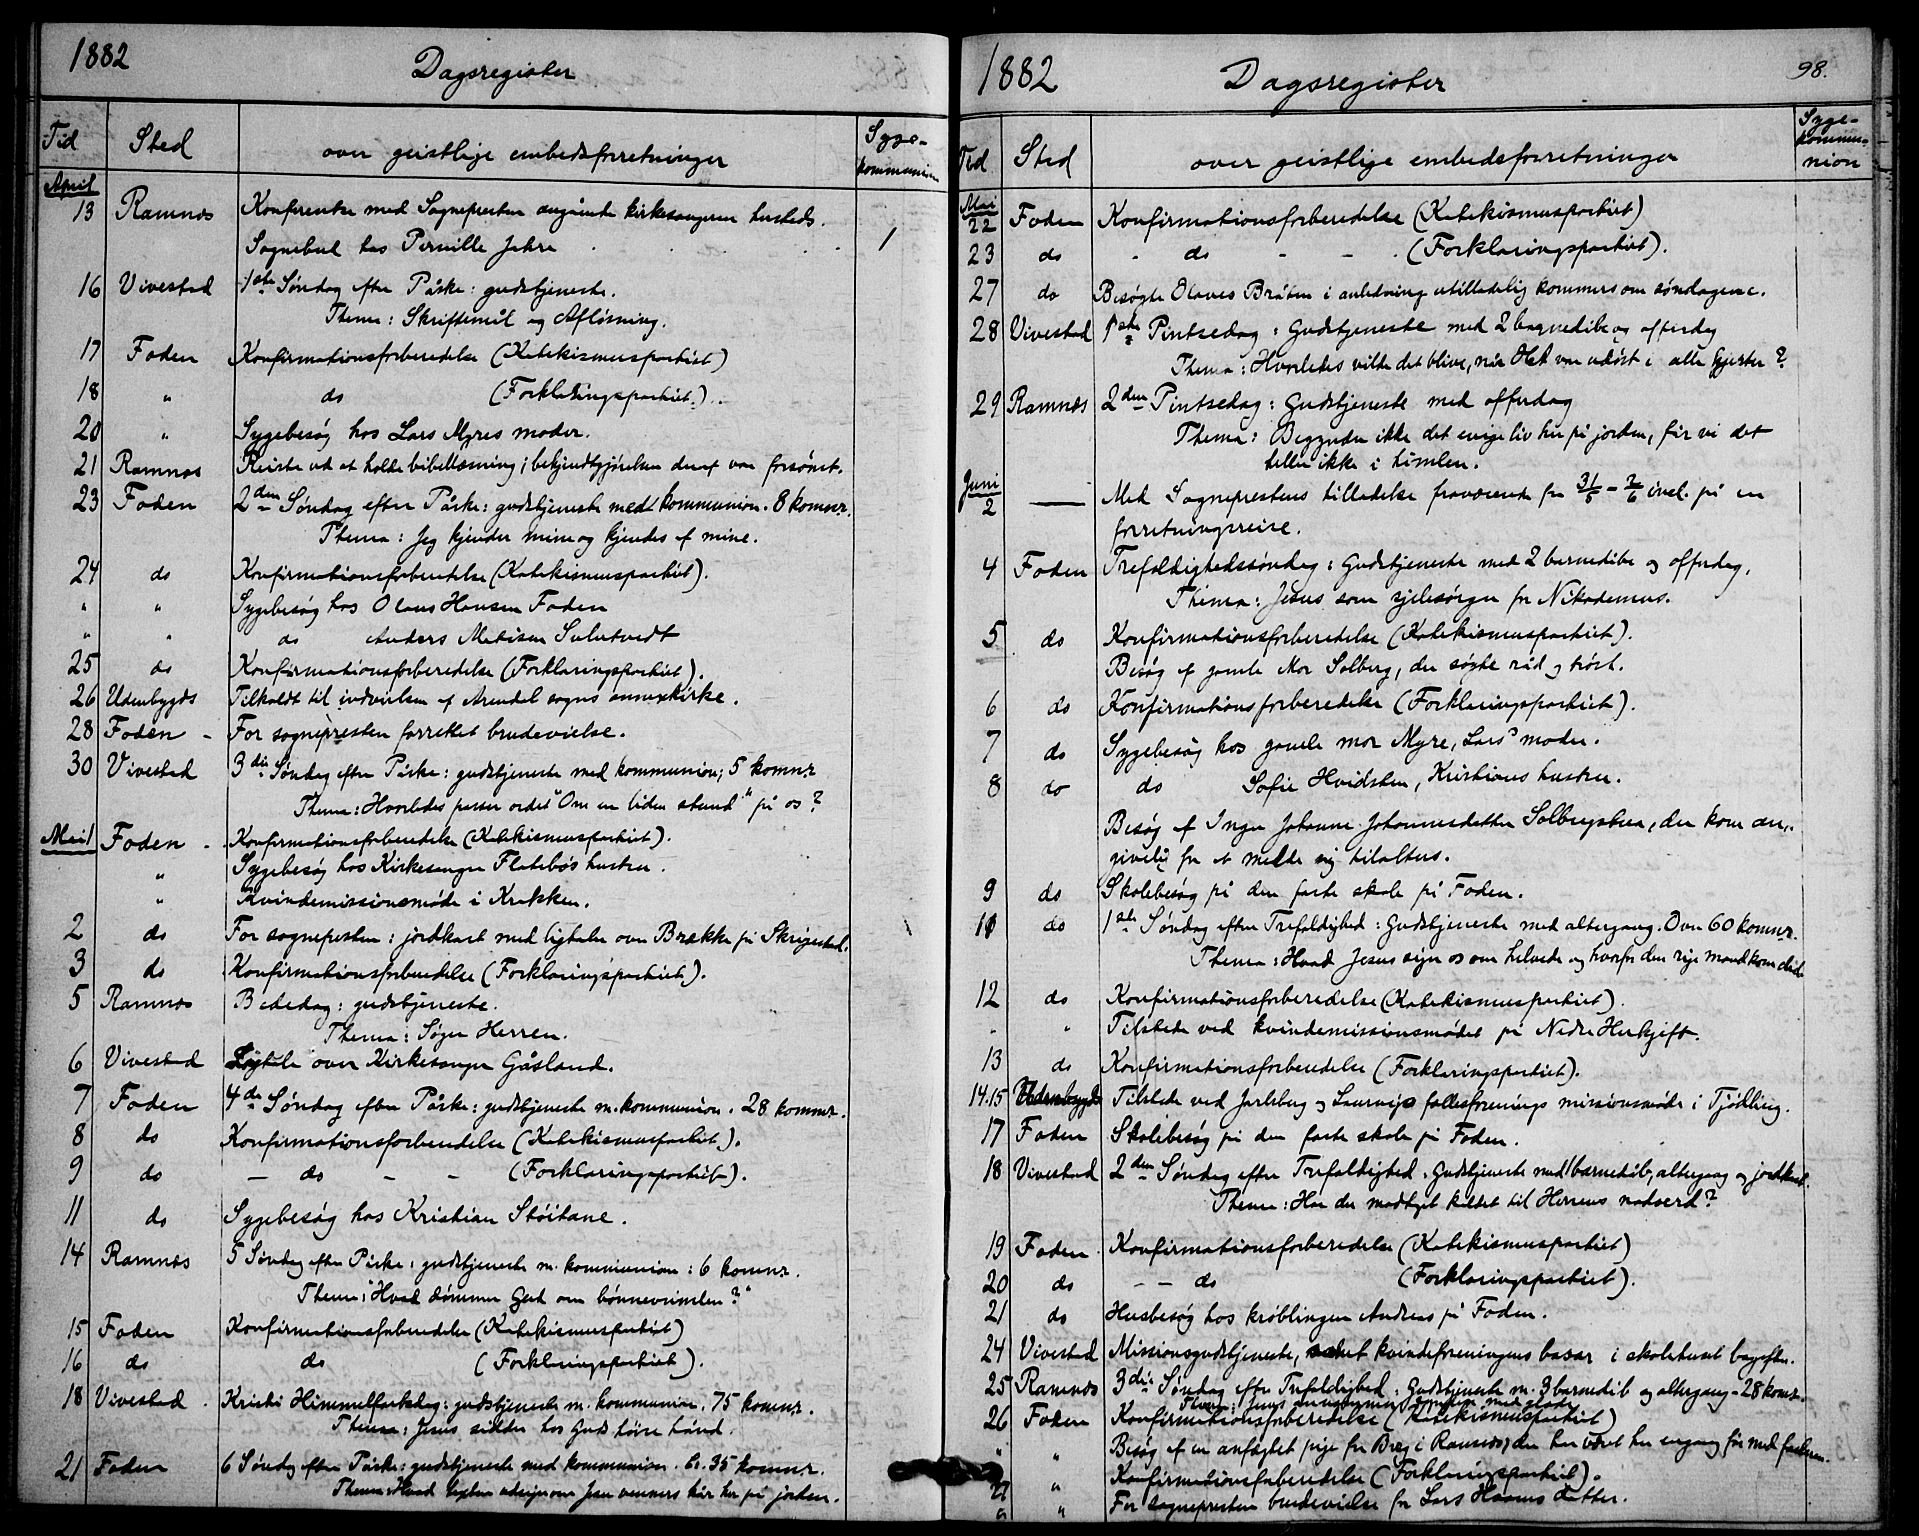 1882
Dagsregister
Tid Sted over geistlige embedsforretninger Syge-
kommunion
April
13 Ramnes Konferentse med Sognepresten angående kirkesangeren
Sognebud hos Pernille Jahre 1
16 Vivestad 1ste Søndag efter Påske: gudstjeneste.
Thema: Skriftemål og Afløsning.
17 Foden Konfirmationsforberedelse (Katekismuspartiet)
18 " do (Forklaringspartiet).
20 " Sygebesøg hos Lars Myres moder.
21 Ramnes Reiste ud at holde bibellæsning; bekjendtgjørelsen deraf var forsømt.
23 Foden 2den Søndag efter Påske: gudstjeneste med kommunion. 8 komnr.
Thema: Jeg kjender mine og kjendes af mine.
24 do Konfirmationsforberedelse (Katekismuspartiet).
" " Sygebesøg hos Olaus Hansen Foden
" " do Anders
25 do Konfirmationsforberedelse (Forklaringspartiet).
26 Udenbygds Tilkaldt til indvielsen af Arendal sogns annexkirke.
28 Foden - For sognepresten forrettet brudevielse.
30 Vivestad 3die Søndag efter Påske: gudstjeneste med kommunion; 5 komnr
Thema: Hvorledes passer ordet "Om en liden stund" på os?
Mai 1 Foden - Konfirmationsforberedelse (Katekismuspartiet).
" Sygebesøg hos Kirkesanger Flatebøs hustru.
" Kvindemissionsmøde i Krakken.
2 do For sognepresten: jordkast med ligtale over Brække på Skrigestad.
3 do Konfirmationsforberedelse (Forklaringspartiet).
5 Ramnes Bededag: gudstjeneste.
Thema: Søger Herren.
6 Vivestad Ligtale over Kirkesanger Gåsland.
7 Foden 4de Søndag efter Påske: gudstjeneste m. kommunion. 28 komnr.
8 do Konfirmationsforberedelse (Katekismuspartiet).
9 do - do - - (Forklaringspartiet).
11 do Sygebesøg hos Kristian Støitane.
14 Ramnes 5 Søndag efter Påske: gudstjeneste m. kommunion: 6 komnr.
Thema: "Hvad dømmer Gud om bønnevrimlen?"
15 Foden Konfirmationsforberedelse (Katekismuspartiet)
16 do do (Forklaringspartiet).
18 Vivestad . Kristi Himmelfartsdag: gudstjeneste m. kommunion. 75 komnr.
Thema: Jesus sidder hos Guds høire hånd.
21 Foden 6 Søndag efter Påske: gudstjeneste med kommunion. Ca. 35 komnr.
Thema: Hvad texten udsiger om Jesu venners kår her på jorden.
1882
Dagsregister
98.
Tid Sted over geistlige embedsforretninger Syge-
kommu-
nion
Mai
22 Foden Konfirmationsforberedelse (Katekismuspartiet)
23 do - do - - (Forklaringspartiet).
27 do Besøgte Olaves Bråten i anledning utilladelig kommers om søndagene.
28 Vivestad 1ste Pintsedag: Gudstjeneste med 2 barnedåbe og offerdag
Thema: Hvorledes vilde det blive, når HA var udøst i alle hjerter?
29 Ramnes 2den Pintsedag: Gudstjeneste med offerdag
Thema: Begynder ikke det evige liv her på jorden, får vi det
heller ikke i himlen.
Juni
2 — Med Sogneprestens tilladelse fraværende fra 31/5 - 2/6 incl. på en
forretningsreise.
4 Foden Trefoldighedssøndag: Gudstjeneste med 2 barnedåbe og offerdag.
Thema: Jesus som sjelesørger for Nikodemus.
5 do Konfirmationsforberedelse (Katekismuspartiet).
Besøg af gamle Mor Solberg, der søgte råd og trøst.
6 do Konfirmationsforberedelse (Forklaringspartiet).
7 do Sygebesøg hos gamle mor Myre, Lars' moder.
8 do do Sofie Hvidsten, Kristians hustru.
Besøg af Inger Johanne Johannesdatter Solbergståen, der kom an-
givelig for at melde sig tilalters.
9 do Skolebesøg på den faste skole på Foden.
11 do 1ste Søndag efter Trefoldighed: Gudstjeneste med altergang. Over 60 komnr.
Thema: Hvad Jesus siger os om helvede og hvorfor den rige mand kom did.
12 do Konfirmationsforberedelse (Katekismuspartiet).
" " Tilstede ved kvindemissionsmødet på Nedre Herkjeft.
13 do Konfirmationsforberedelse (Forklaringspartiet).
14.15 Udenbygds Tilstede ved Jarlsberg og Laurvigs fællesforenings missionsmøde i Tjødling.
17 Foden Skolebesøg på den faste skole på Foden.
18 Vivestad 2den Søndag efter Trefoldighed. Gudstjeneste med 1 barnedåb, altergang og jordkast.
Thema: Har du modtaget kaldet til Herrens nadverd?
19 Foden . Konfirmationsforberedelse (Katekismuspartiet)
20 do - - do (Forklaringspartiet).
21 do Husbesøg hos krøblingen Andreas på Foden.
24 Vivestad Missionsgudstjeneste, samt kvindeforeningens basar i skolehuset bagefter.
25 Ramnes 3die Søndag efter Trefoldighed: Gudstjeneste m. 3 barnedåb og altergang - 28 komnr.
Thema: Jesus annammer syndere med glæde
26 Foden Konfirmationsforberedelse (Katekismuspartiet)
" " Besøg af en anfægtet pige fra Berg i Ramnes, der har været her engang før med faderen.
27 " Konfirmationsforberedelse (Forklaringspartiet).
" " For sognepresten brudevielse for Lars Haaens datter.